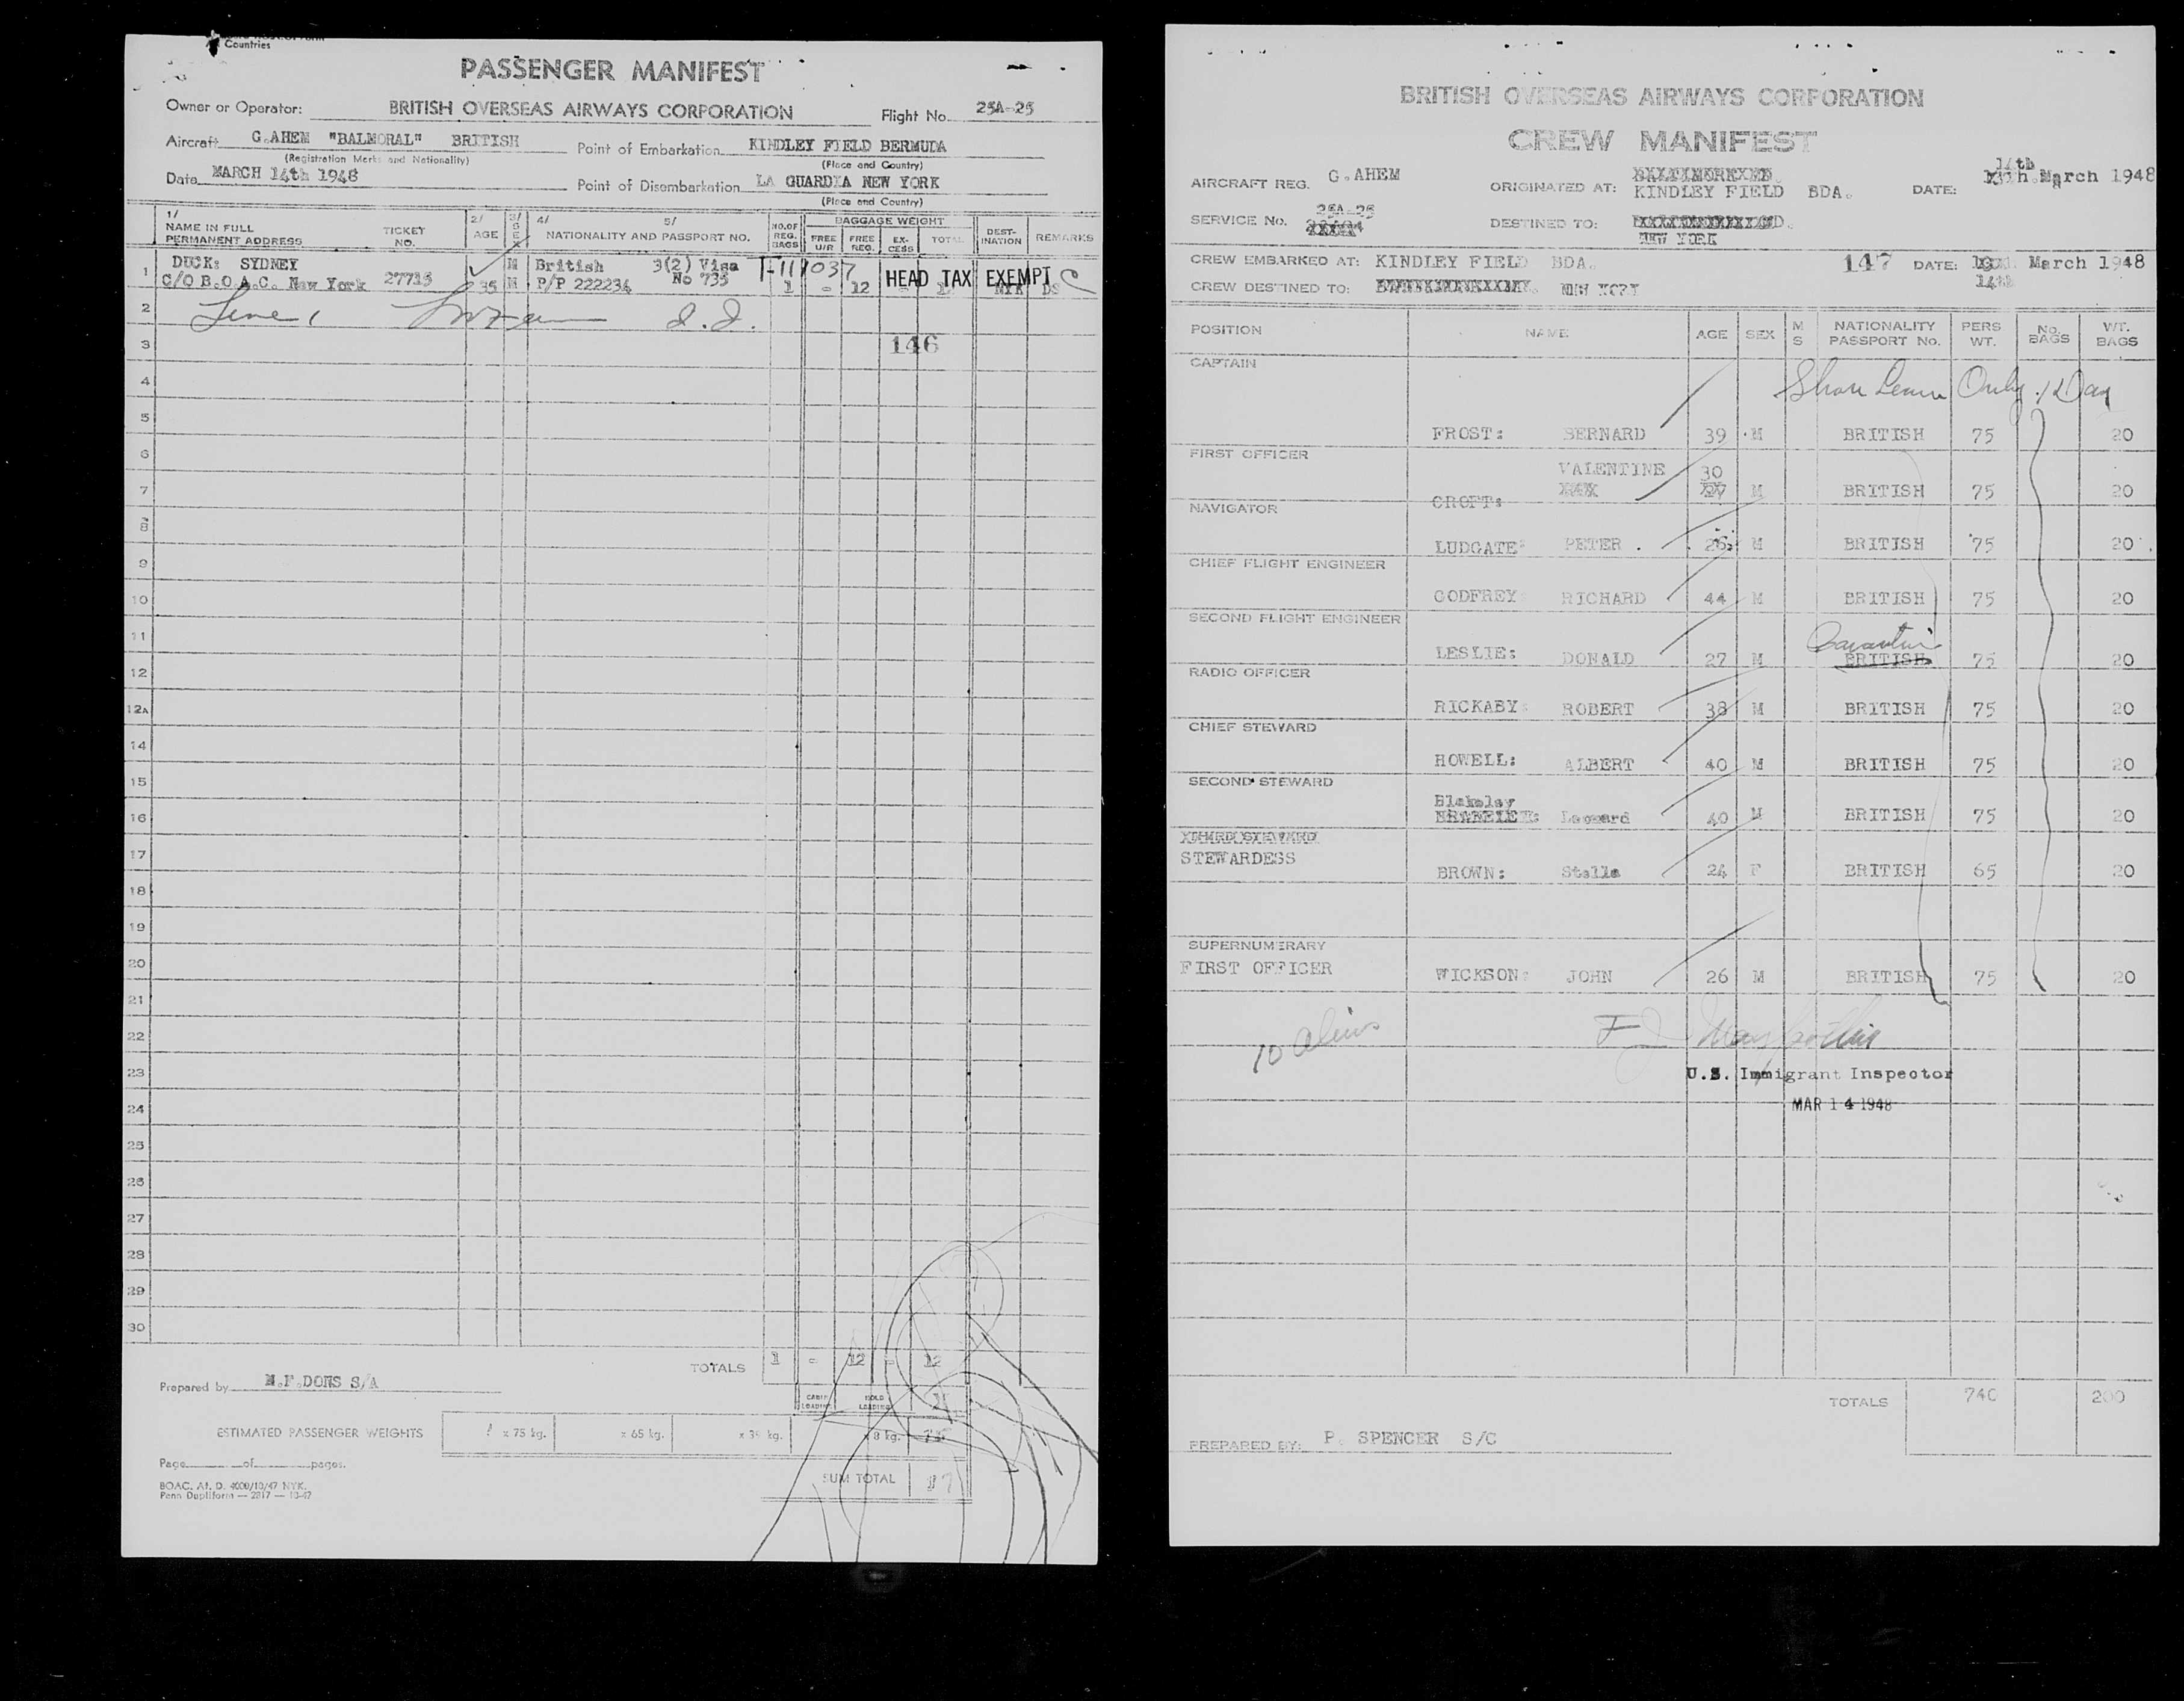 Countries
PASSENGER MANIFEST
Owner or Operator: BRITISH OVERSEAS AIRWAYS CORPORATION Flight No. 25A-25
Aircraft G.AHEM "BALMORAL" BRITISH Point of Embarkation KINDLEY FIELD BERMUDA
(Registration Marks and Nationality) (Place and Country)
Date MARCH 14th 1948 Point of Disembarkation LA GUARDIA NEW YORK
(Place and Country)
1/ NAME IN FULL PERMANENT ADDRESS TICKET NO. 2/ AGE 3/ SEX 4/ 5/ NATIONALITY AND PASSPORT NO. NO. OF REG. BAGS BAGGAGE WEIGHT FREE U/R FREE REG. EXCESS TOTAL DESTINATION REMARKS
1 DUCK: SYDNEY M British 3(2) Visa
C/O B.O.A.C. New York 27715 35 M P/P 222234 No 735 1 - 12 HEAD TAX EXEMPT
2
3 146
4
5
6
7
8
9
10
11
12
12A
14
15
16
17
18
19
20
21
22
23
24
25
26
27
28
29
30
TOTALS 1 - 12 - 12
Prepared by M.F.DONS S/A
CABIN LOADING HOLD LOADING
ESTIMATED PASSENGER WEIGHTS x 75 kg. x 65 kg. x 35 kg. x 8 kg.
Page of pages.
SUM TOTAL
BOAC. At. D. 4000/10/47 NYK.
Penn Dupliform — 2817 — 10-47
BRITISH OVERSEAS AIRWAYS CORPORATION
CREW MANIFEST
AIRCRAFT REG. G.AHEM ORIGINATED AT: KINDLEY FIELD BDA. DATE: 14th March 1948
SERVICE No. 25A-25 DESTINED TO: NEW YORK
CREW EMBARKED AT: KINDLEY FIELD BDA. 147 DATE: March 1948
CREW DESTINED TO: NEW YORK 14th
POSITION NAME AGE SEX M S NATIONALITY PASSPORT No. PERS WT. No. BAGS WT. BAGS
CAPTAIN
Shore Leave Only
FROST: BERNARD 39 M BRITISH 75 20
FIRST OFFICER
VALENTINE 30
CROFT: M BRITISH 75 20
NAVIGATOR
LUDGATE: PETER 26 M BRITISH 75 20
CHIEF FLIGHT ENGINEER
GODFREY: RICHARD 44 M BRITISH 75 20
SECOND FLIGHT ENGINEER
LESLIE: DONALD 27 M BRITISH 75 20
RADIO OFFICER
RICKABY: ROBERT 38 M BRITISH 75 20
CHIEF STEWARD
HOWELL: ALBERT 40 M BRITISH 75 20
SECOND STEWARD
Blakeley
Leonard 40 M BRITISH 75 20
THIRD STEWARD
STEWARDESS
BROWN: Stella 24 F BRITISH 65 20
SUPERNUMERARY
FIRST OFFICER WICKSON: JOHN 26 M BRITISH 75 20
10 aliens
U.S. Immigrant Inspector
MAR 14 1948
TOTALS 740 200
PREPARED BY: P. SPENCER S/C